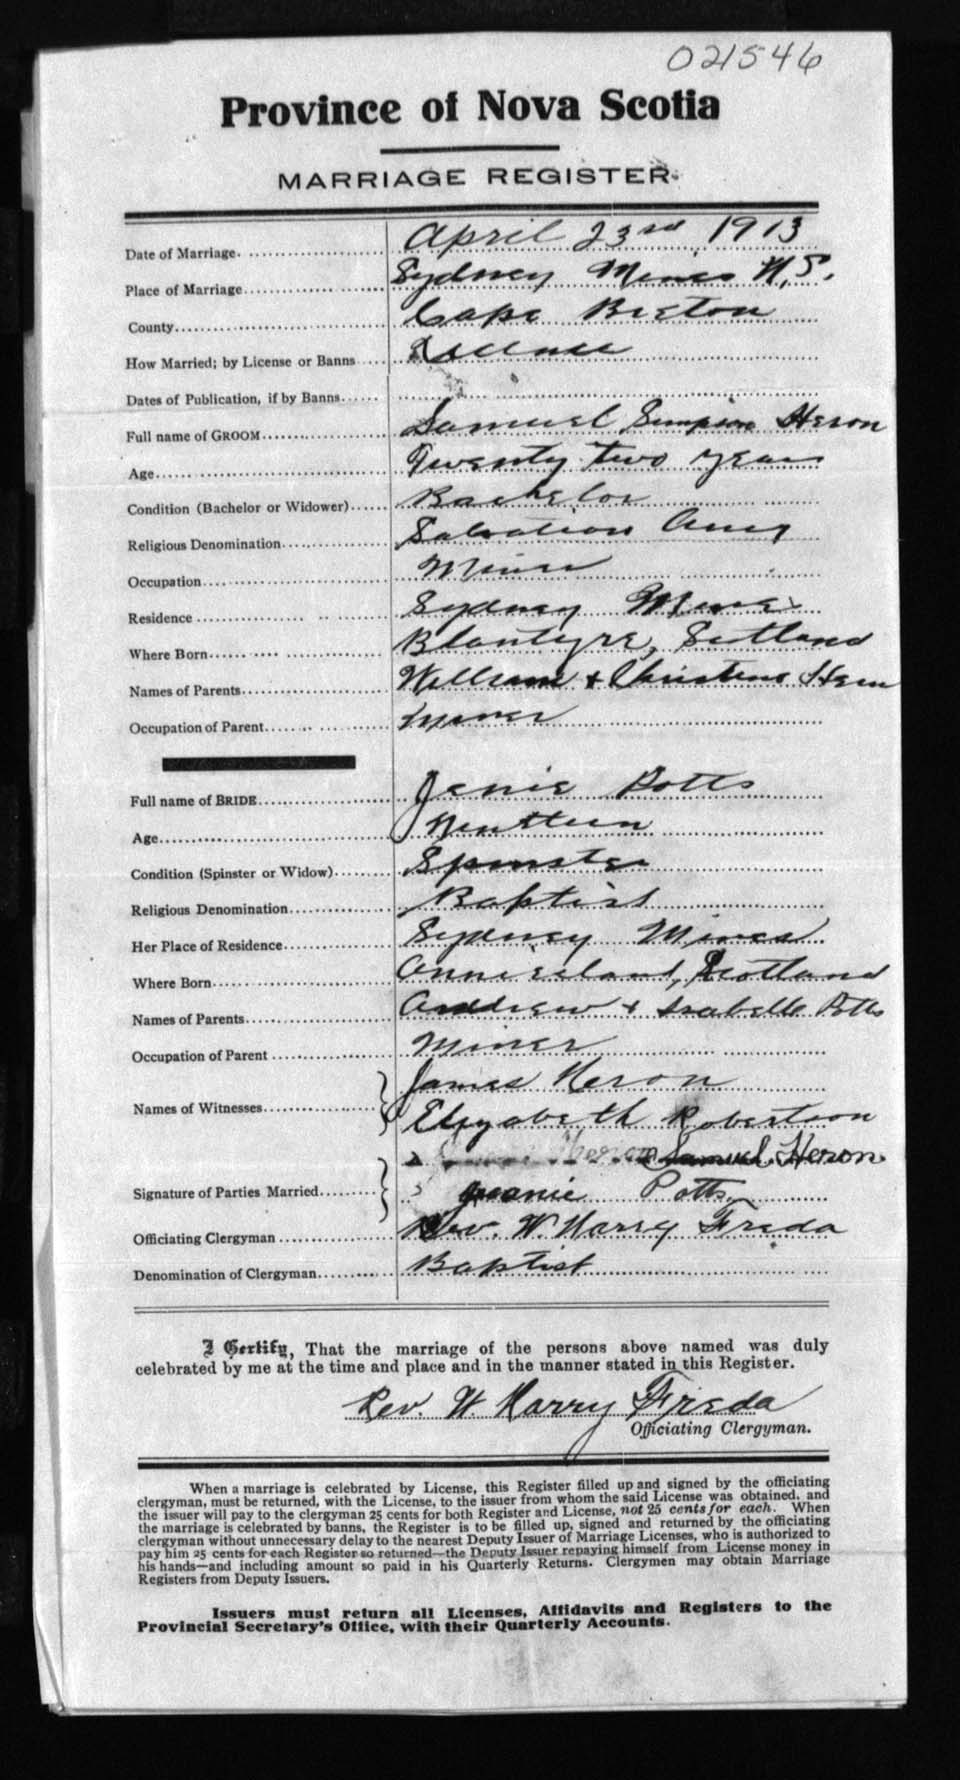 021546
Province of Nova Scotia
MARRIAGE REGISTER
Date of Marriage. April 23rd, 1913
Place of Marriage Sydney Mines N.S.
County Cape Breton
How Married; by License or Banns License
Dates of Publication, if by Banns
Full name of GROOM Samuel Simpson Heron
Age Twenty two years
Condition (Bachelor or Widower) Bachelor
Religious Denomination Salvation Army
Occupation Miner
Residence Sydney Mines
Where Born Blantyre, Scotland
Names of Parents William & Christena Heron
Occupation of Parent Miner
Full name of BRIDE Jenie Potts
Age Nineteen
Condition (Spinster or Widow) Spinster
Religious Denomination Baptist
Her Place of Residence Sydney Mines
Where Born Anniesland, Scotland
Names of Parents Andrew & Isabelle Potts
Occupation of Parent Miner
James Heron
Names of Witnesses
Elizabeth Robertson
Heron Samuel Heron
Signature of Parties Married Jeanie Potts
Officiating Clergyman Rev. W. Harry Freda
Denomination of Clergyman Baptist
I Certify, That the marriage of the persons above named was duly
celebrated by me at the time and place and in the manner stated in this Register.
Rev. W. Harry Freda
Officiating Clergyman.
When a marriage is celebrated by License, this Register filled up and signed by the officiating
clergyman, must be returned, with the License, to the issuer from whom the said License was obtained, and
the issuer will pay to the clergyman 25 cents for both Register and License, not 25 cents for each. When
the marriage is celebrated by banns, the Register is to be filled up, signed and returned by the officiating
clergyman without unnecessary delay to the nearest Deputy Issuer of Marriage Licenses, who is authorized to
pay him 25 cents for each Register so returned—the Deputy Issuer repaying himself from License money in
his hands—and including amount so paid in his Quarterly Returns. Clergymen may obtain Marriage
Registers from Deputy Issuers.
Issuers must return all Licenses, Affidavits and Registers to the
Provincial Secretary's Office, with their Quarterly Accounts.